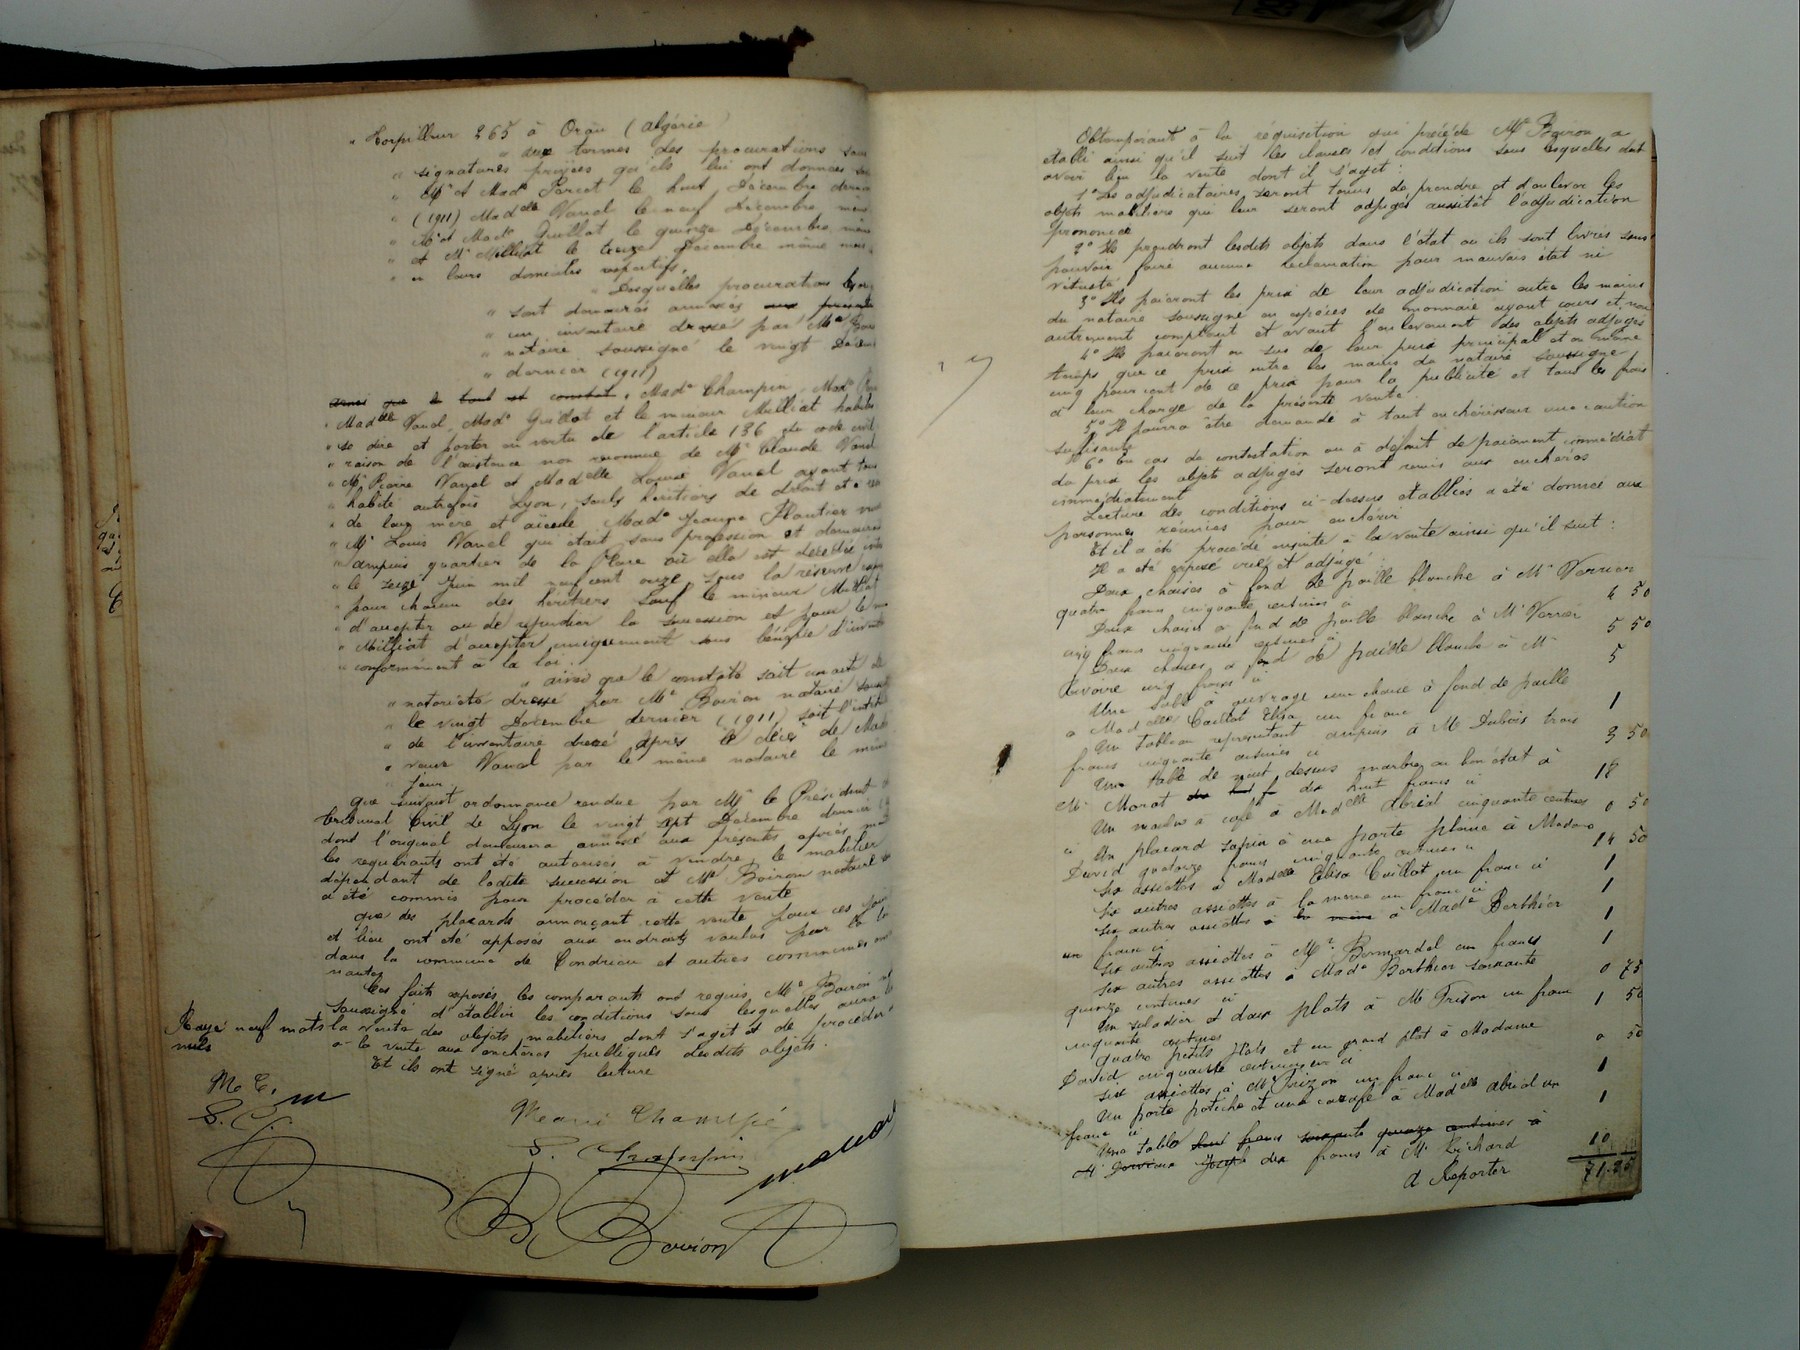 " Torpilleur 265 à Oran (Algérie)
" aux termes des procurations sous
" signatures privées qu'ils lui ont données
" Mr et Made Parcet le huit Décembre dernier
" (1911) Madelle Vanel le neuf Décembre même
" Mr et Made Guillot le quinze Décembre même
" et Mr Milliat le treize Décembre même mois
" en leurs domiciles respectifs.
" Desquelles procurations
" sont demeurés annexés aux présentes
" un inventaire dressé par Me
" notaire soussigné le vingt
" dernier (1911)
ainsi que le tout est constat. Made Champin, Made
" Madelle Vanel, Made Guillot et le mineur Milliat habiles
" se dire et porter en vertu de l'article 136 du code civil
" raison de l'existence non reconnue de Mr Claude Vanel
" Mr Pierre Vanel et Madelle Louise Vanel ayant tous
" habité autrefois Lyon, seuls héritiers de droit et
" de leur mère et aïeule Made Jeanne Plantier
" Mr Louis Vanel qui était sans profession et demeurait
" ampuis quartier de la Place où elle est décédée
" le seize Juin mil neuf cent onze sous la réserve
" pour chacun des héritiers sauf le mineur Milliat
" d'accepter ou de répudier la succession et pour le
" Milliat d'accepter uniquement sous bénéfice d'inventaire
" conformément à la loi.
" ainsi que le constate soit un acte de
" notoriété dressé par Me Boiron notaire
" le vingt Décembre dernier (1911) soit l'intitulé
" de l'inventaire dressé après le décès de Made
" veuve Vanel par le même notaire le même
" jour
que suivant ordonnance rendue par Mr le Président
tribunal Civil de Lyon le vingt sept Décembre dernier
dont l'original demeurera annexé aux présentes après
les requérants ont été autorisés à vendre le mobilier
dépendant de ladite succession et Me Boiron notaire
a été commis pour procéder à cette vente
que des placards annonçant cette vente pour ces jour
et lieu ont été apposés aux endroits voulus par la loi
dans la commune de Condrieu et autres communes
Ces faits exposés, les comparants ont requis Me Boiron
soussigné d'établir les conditions sous lesquelles aura
Rayé neuf mots la vente des objets mobiliers dont s'agit et de procéder
nuls à la vente aux enchères publiques desdits objets.
Et ils ont signé après lecture
M C.
S. C.
S. Champin
Boiron
Obtempérant à la réquisition qui précède Me Boiron a
établi ainsi qu'il suit les clauses et conditions sous lesquelles doit
avoir lieu la vente dont il s'agit:
1° Les adjudicataires seront tenus de prendre et d'enlever les
objets mobiliers qui leur seront adjugés aussitôt l'adjudication
prononcée
2° Ils prendront lesdits objets dans l'état où ils sont livrés sans
pouvoir faire aucune réclamation pour mauvais état ni
vétusté
3° Ils paieront les prix de leur adjudication entre les mains
du notaire soussigné en espèces de monnaie ayant cours et non
autrement comptant et avant l'enlèvement des objets adjugés
4° Ils paieront en sus de leur prix principal et en même
temps que ce prix entre les mains du notaire soussigné
cinq pour cent de ce prix pour la publicité et tous les frais
à leur charge de la présente vente.
5° Il pourra être demandé à tout enchérisseur une caution
suffisante
6° En cas de contestation ou à défaut de paiement immédiat
du prix les objets adjugés seront remis aux enchères
immédiatement
Lecture des conditions ci-dessus établies a été donnée aux
personnes réunies pour enchérir
Et il a été procédé ensuite à la vente ainsi qu'il suit:
Il a été exposé crié et adjugé:
Deux chaises à fond de paille blanche à Mr Verrier
quatre francs cinquante centimes ci 4 50
Deux chaises à fond de paille blanche à Mr Verrier
cinq francs cinquante centimes ci 5 50
Deux chaises à fond de paille blanche à Mr
cinq francs ci 5
Une table à ouvrage une chaise à fond de paille
à Madelle Caillat Elisa un franc 1
Un tableau représentant ampuis à Mr Dubois trois
francs cinquante centimes ci 3 50
Une table de nuit dessus marbre en bon état à
Mr Morat dix huit francs ci 18
Un moulin à café à Madelle Abrial cinquante centimes
ci 0 50
Un placard sapin à une porte pleine à Madame
David quatorze francs cinquante centimes ci 14 50
Six assiettes à Madelle Elisa Caillat un franc ci 1
Six autres assiettes à la même un franc ci 1
Six autres assiettes à la même à Made Berthier
un franc ci 1
Six autres assiettes à Mr Bernardel un franc 1
Six autres assiettes à Made Berthier soixante
quinze centimes ci 0 75
Un saladier et deux plats à Mr Frison un franc
cinquante centimes 1 50
Quatre petits plats et un grand plat à Madame
David cinquante centimes ci 0 50
Six assiettes à Mr Frizon un franc ci 1
Un porte potiche et une carafe à Madelle Abrial un
franc ci 1
Une table huit francs soixante quinze centimes à
Mr Joseph dix francs à Mr Richard 10
A Reporter 71.25